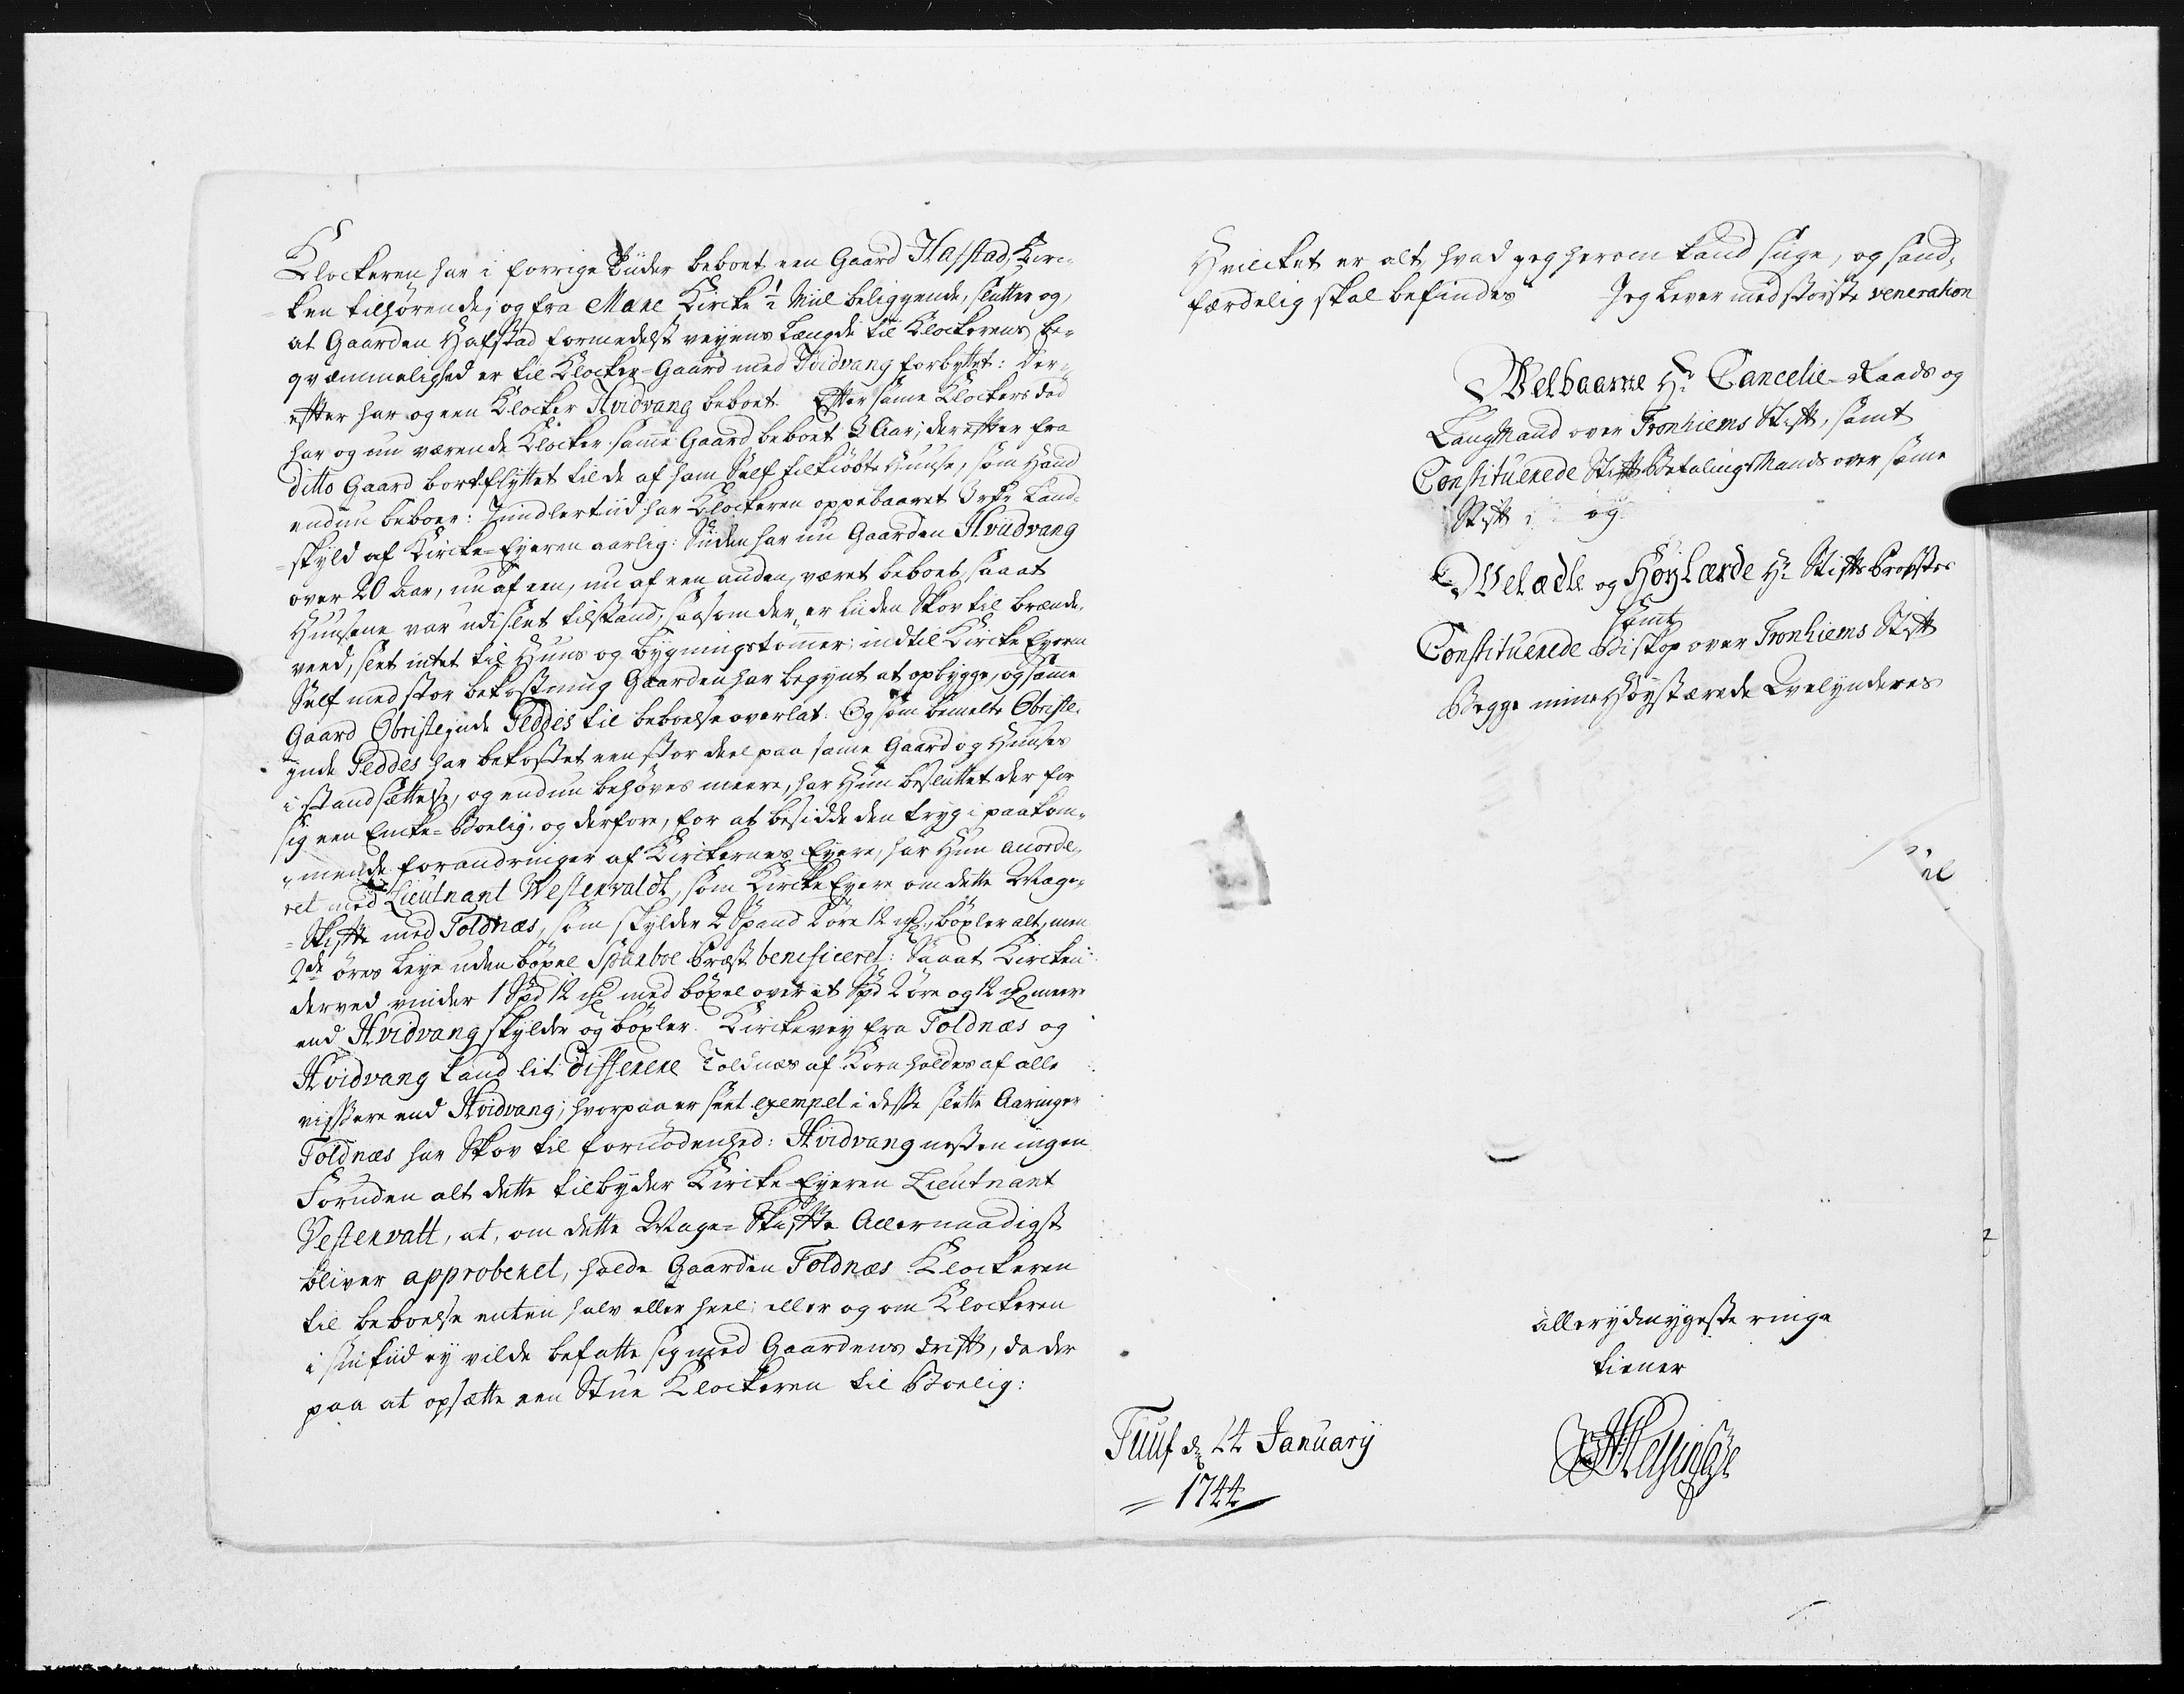 Klockeren har i forrige Tiider beboet een Gaard Hafstad, Kirc-
ken tilhørende, og fra Mære Kircke ½ Miil beliggende, slutter og,
at Gaarden Hafstad formedelst veyens Længde til Klockerens be-
qvæmmelighed er til Klocker-Gaard med Hvidvang forbyttet: Der-
efter har og een Klocker Hvidvang beboet. Efter samme Klockers død
har og nu værende Klocker samme Gaard beboet 3 Aar; derefter fra
ditto Gaard bortflyttet til de af ham Self tilkiøbte Huuse, som Hand
endnu beboer: Imidlertiid har Klockeren oppebaaret Land-
skyld af Kircke-Eyeren aarlig: Siiden har nu Gaarden Hviidvang
over 20 Aar, nu af een, nu af een anden, været beboet, saa at
Huusene var udi slet tilstand, saasom der er liiden Skov til brænde-
veed, slet intet til Huus og bygningstømer; indtil Kircke Eyeren
Self med stor bekostning Gaarden har begynt at opbygge, og samme
Gaard Obristlejnde Peddes til beboelse overlat: Og som bemelte Obristl-
ynde Peddes har bekostet een stor deel paa same Gaard og Huuses
i standsættelse, og endnu behøves meere, har Hun besluttet der for
sig een Encke-Boelig, og derfore, for at besidde den tryg i paakom-
mende forandringer af Kirckernes Eyere, har Hun accorde-
ret med Lieutnant Westervaldt, som Kircke Eyere om dette Mage-
Skifte med Toldnæs, som skylder 2 Spand 2 øre 12 bøxler alt, men
2de øres leye uden bøxel Sparboe Præst beneficeret: Saa at Kircken
derved vinder 1 Spd 12 med bøxel over et Spd 2 øre og 12 meere
end Hvidvang skylder og bøxler. Kirckevey fra Toldnæs og
Hvidvang kand lit differere Toldnæs af Korn holdes af alle
vissere end Hvidvang; hvorpaa er seet exempel i disse slette Aaringer
Toldnæs har Skov til fornødenhed: Hvidvang nesten ingen
Foruden alt dette tilbyder Kircke-Eyeren Lieutnant
Vestervatt, at, om dette Mage-Skifte Allernaadigst
bliver approberet, holde Gaarden Toldnæs Klockeren
til beboelse enten halv eller heel; eller og om Klockeren
i sin tiid ey vilde befatte sig med Gaardens drift, da der
paa at opsætte een Stue Klockeren til Boelig:
Hvilcket er alt, hvad jeg herom kand siige, og sand-
færdelig skal befindes Jeg lever med største veneration
Welbaarne Hr Cancelie-Raads og
LaugMand over Tronhiems Stift, samt
Constituerede StiftsBefalingsMands over same
Stift og
Welædle og HøyLærde Hr StiftsProvstes
samt
Constituerede Biskop over Tronhiems Stift
Begge mine Høystærede Welynderes
allerydmygeste ringe
tiener
Tuuf d 24 January
1744